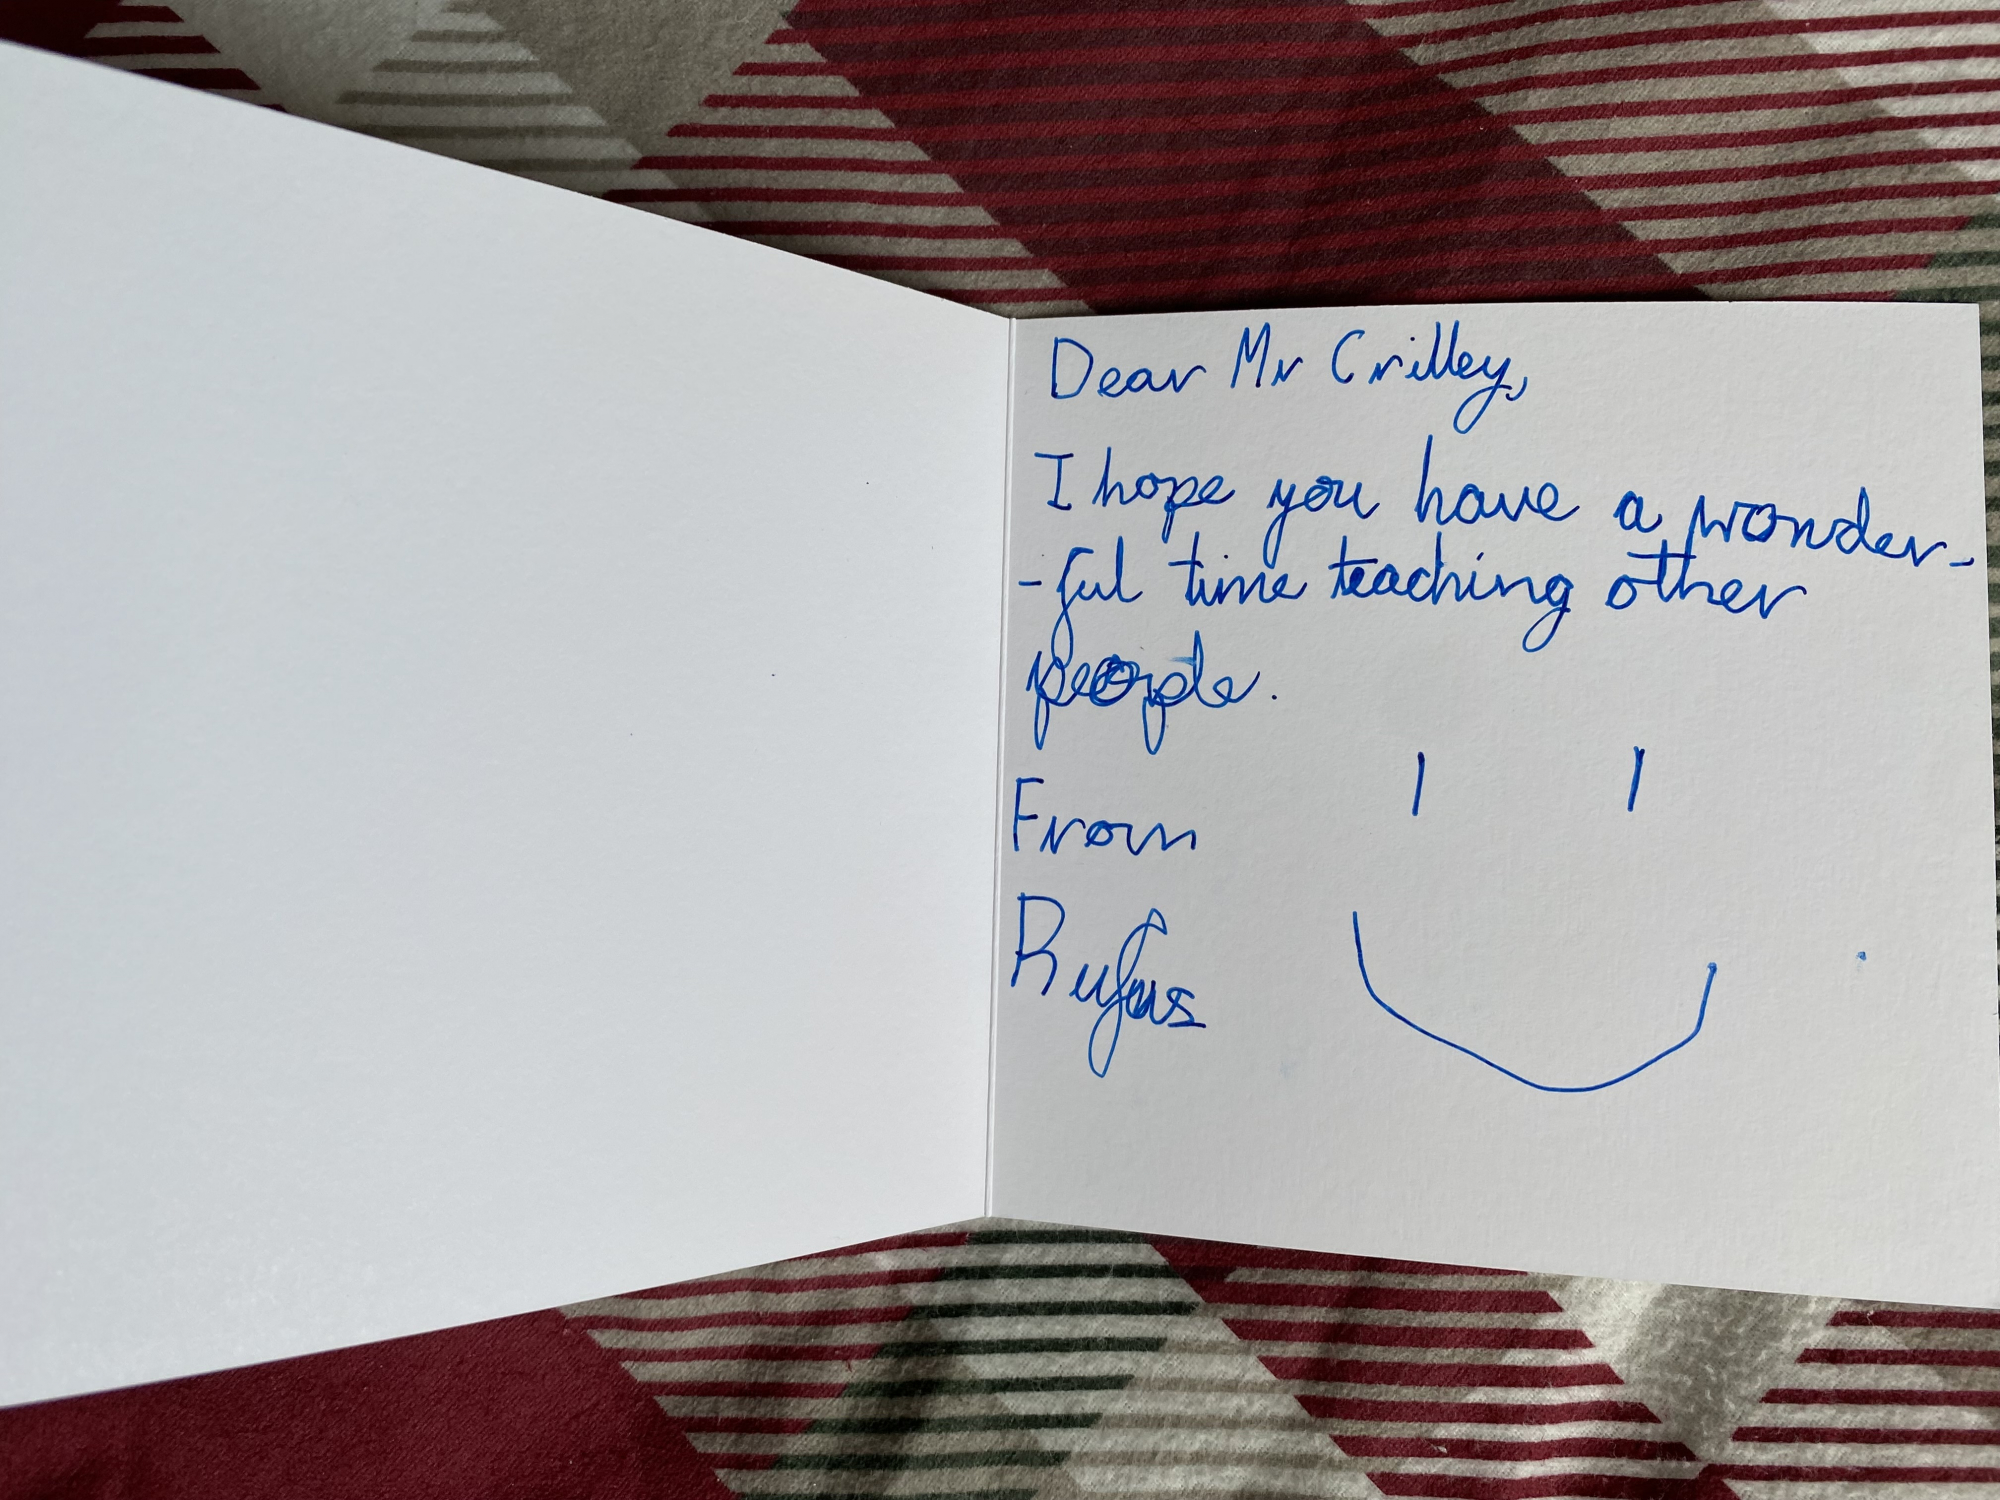 Dear Mr Crilley,
I hope you have a wonder-
-ful time teaching other
people.
From
Rufus